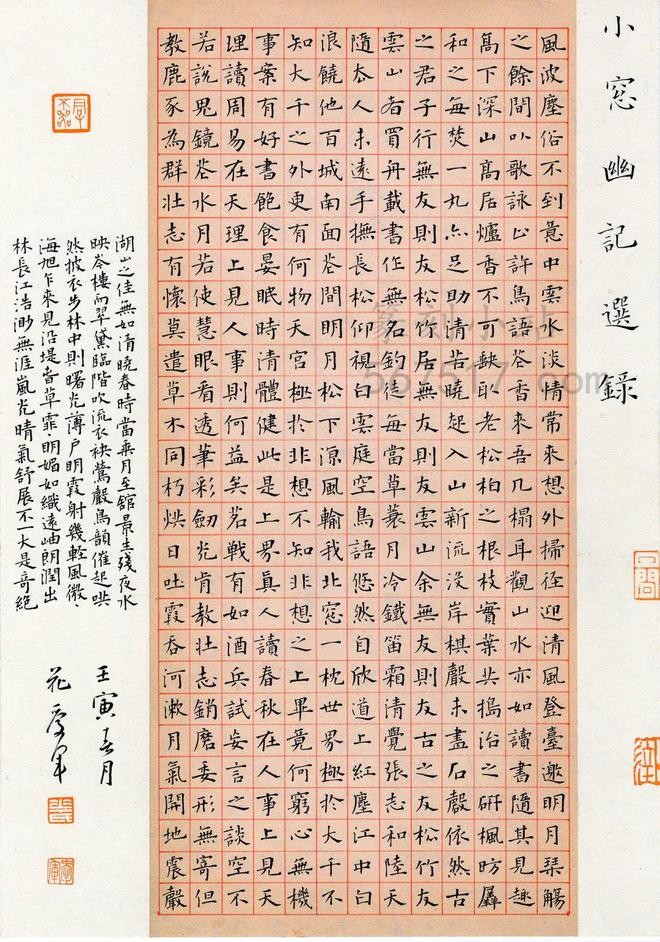 小窓幽記選錄
風波塵俗不到意中雲水淡情常來想外掃徑迎清風登臺邀明月琴觴
之餘間以歌詠止許鳥語花香來吾几榻耳觀山水亦如讀書隨其見趣
高下深山高居爐香不可缺取老松柏之根枝實葉共搗治之研楓肪羼
和之每焚一丸亦足助清苦曉起入山新流沒岸棋聲未盡石磬依然古
之君子行無友則友松竹居無友則友雲山余無友則友古之友松竹友
雲山者買舟載書作無名釣徒每當草蓑月冷鐵笛霜清覺張志和陸天
隨去人未遠手撫長松仰視白雲庭空鳥語悠然自欣道上紅塵江中白
浪饒他百城南面花間明月松下涼風輸我北窓一枕世界極於大千不
知大千之外更有何物天宮極於非想不知非想之上畢竟何窮心無機
事案有好書飽食晏眠時清體健此是上界真人讀春秋在人事上見天
理讀周易在天理上見人事則何益矣茗戰有如酒兵試妄言之談空不
若說鬼鏡花水月若使慧眼看透筆彩劍光肯教壯志銷磨委形無寄但
教鹿豕為群壯志有懷莫遣草木同朽烘日吐霞吞河漱月氣開地震聲
湖山之佳無如清曉春時當乘月至館景生殘夜水
映岑樓而翠黛臨階吹流衣袂鶯聲鳥韻催起哄
然披衣步林中則曙光薄戶明霞射幾輕風微、
海旭乍來見沿堤春草霏、明媚如織遠岫朗潤出
林長江浩渺無涯嵐光晴氣舒展不一大是奇絕
壬寅春月